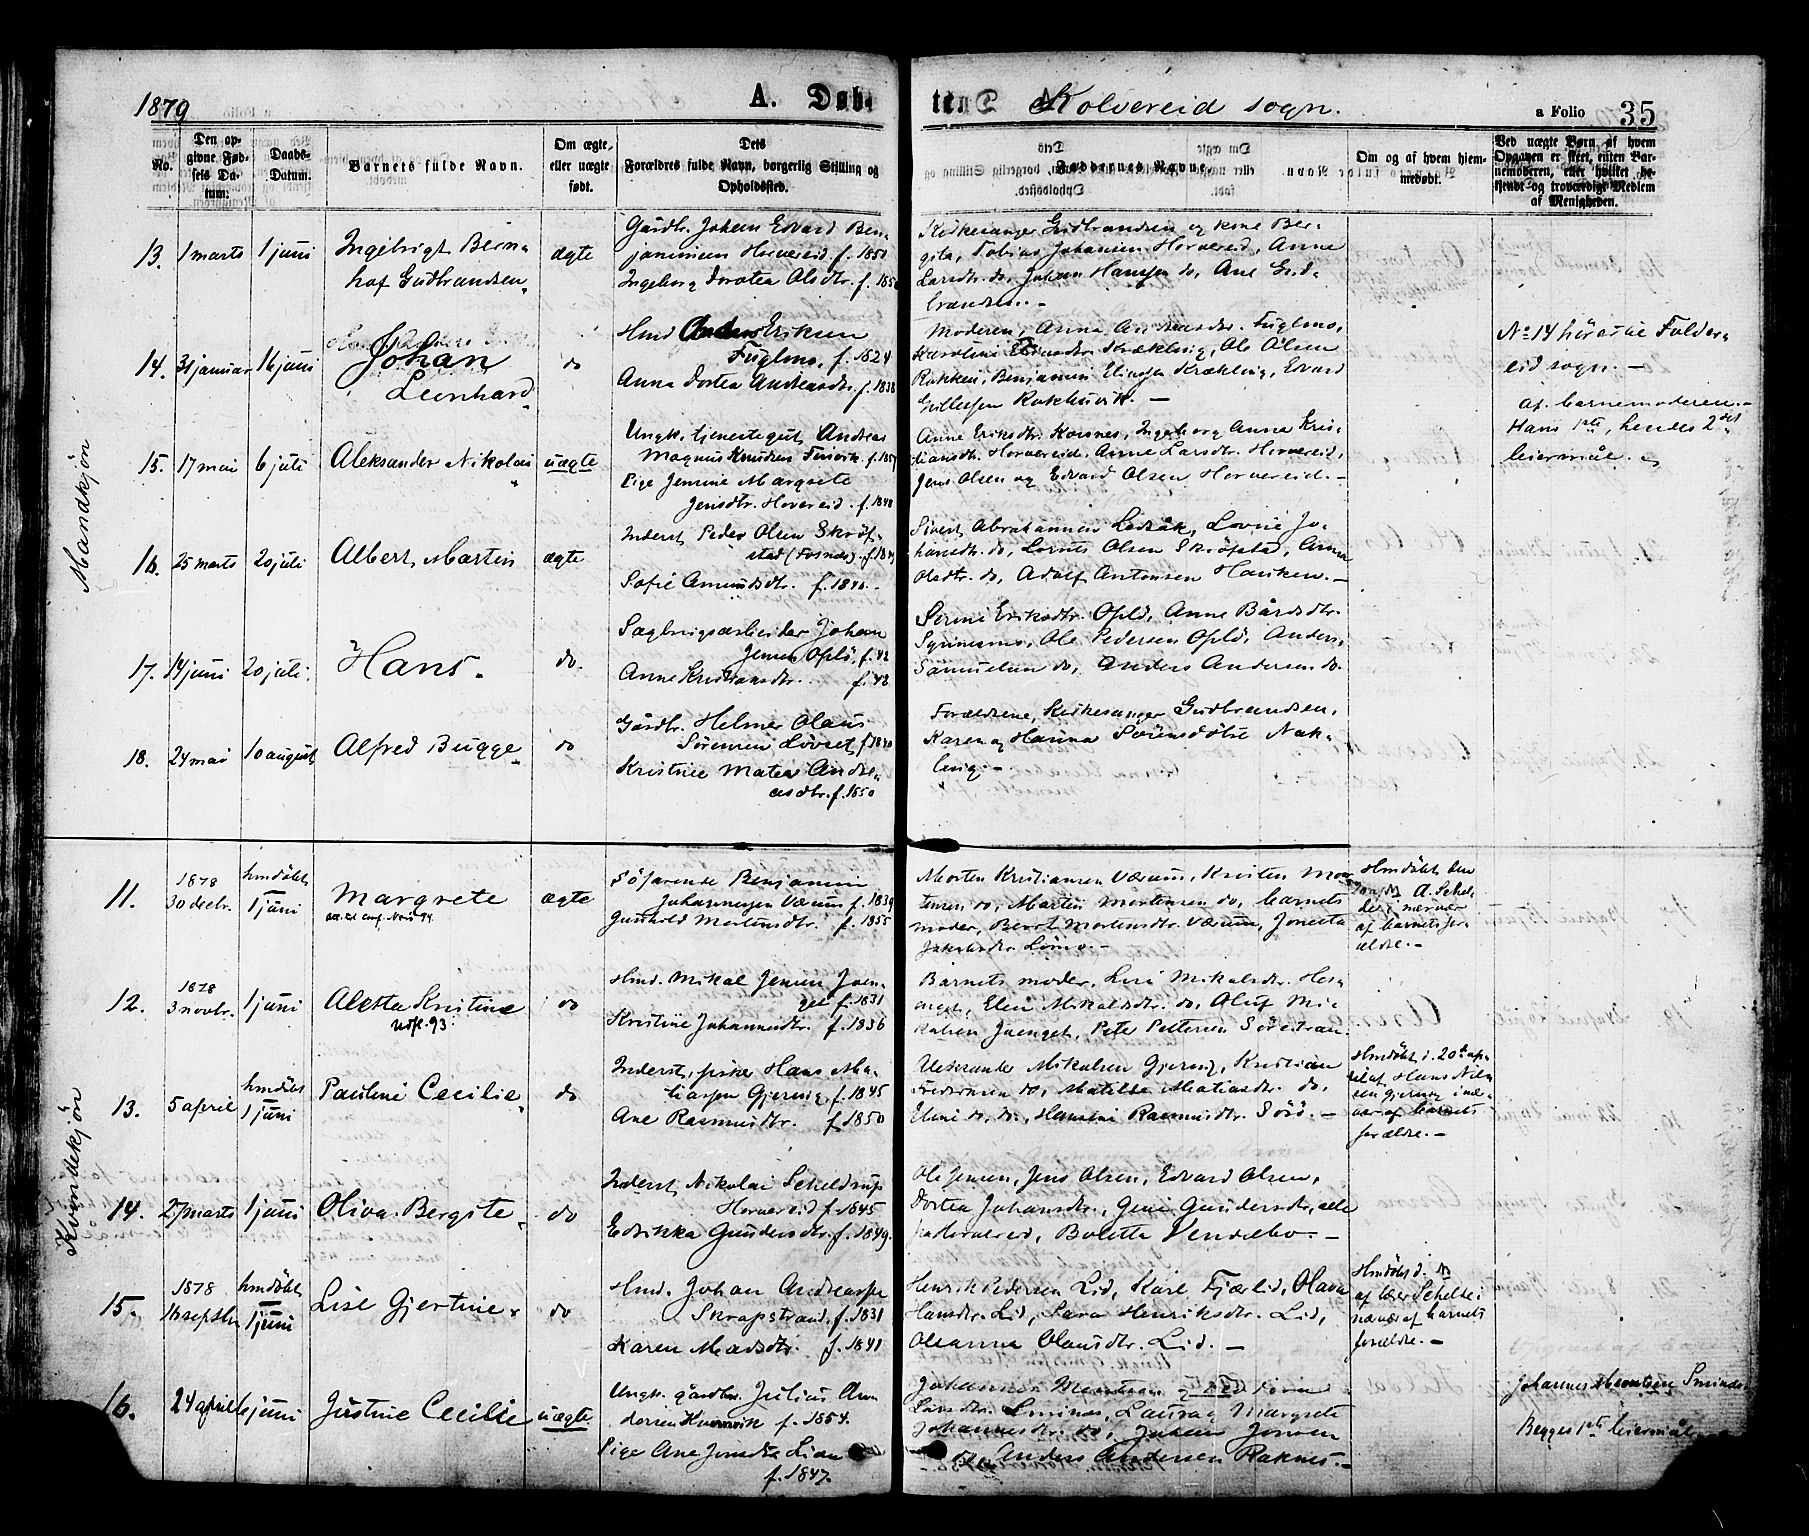 1879
A. Døbte
Kolvereid sogn.
a Folio 35
No.
Den opgivne Fødsels Datum.
Daabs-Datum.
Barnets fulde Navn.
Om ægte, eller uægte født.
Dets Forældres fulde Navn, borgerlig Stilling og Opholdssted.
Faddernes Navne.
Om og af hvem hjemmedøbt.
Ved uægte Børn, af hvem Opgaven er skeet, enten Barnemoderen, eller hvilket bekjendt og troværdigt Medlem af Menigheden.
Mandkjøn
13. 1 marts 1 juni
Ingebrigt Bern-
hof Gudbrandsen
ægte
Gårdbr. Johan Edvard Ben-
jaminsen Horvereid f. 1850
Ingeborg Dorotea Olsdtr. f.
Kirkesanger Gudbrandsen og kone Ber-
gita, Tobias Johansen Horvereid, Anna
Larsdtr. do, Johan Hansen do, Ane Gud-
brandsen. -
14. 31 januar 16 juni
Johan
Leonhard
do
Hmd Anders Eriksen
Fuglmo, f. 1824
Anna Dortea Andreasdtr. f. 1838
Moderen, Anna Andreasdtr. Fuglmo,
Karoline Krækling, Ole Olsen
Rokken, Benjamin Elingsen Krækling, Edvard
No 14 hörer til Folder-
eid sogn. -
15. 17 mai 6 juli
Aleksander Nikolai
uægte
Ungk. tjenestegut Andreas
Magnus Knudsen f. 1857
Pige Jensine Margrete
Jensdtr. Horvereid f. 1848
Anne Eriksdtr. Korsnes, Ingeborg Anna Kris-
tiansdtr. Horvereid, Anne Larsdtr. Horvereid,
Jens Olsen og Edvard Olsen Horvereid. -
af barnemoderen. -
Hans 1ste, hendes 2det
leiermål.
16. 25 marts 20 juli
Albert Martin
ægte
Inderst Peder Olsen Skröf-
stad (Fosnes)
Sofie Amundsdtr. f. 1840
Sivert Abrahamsen Ledsåk, Lovise Jo-
hansdtr. do, Lornts Olsen Skröfstad, Anna
Olsdtr. do, Adolf Antonsen Hansken. -
17. 14 juni 20 juli
Hans.
do.
Sagbrugsarbeider Johan
Jensen Opld, f. 42
Anne Kristiansdtr. f. 42
Serine Eriksdtr. Opld, Anne Bårdsdtr.
Ole Pedersen Opld, Anders
Samuelsen do, Anders Andersen do.
18. 24 mai 10 august
Alfred Bugge
do
Gårdbr. Helmer Olaus
Sörensen Lövset, f. 1840
Kristine Matea Andre-
asdtr. f. 1850
Forældrene, Kirkesanger Gudbrandsen,
Karen og Hanna Sörensdötre Nak-
ling. -
Kvindekjøn
11. 1878 30 decbr. hmdöbt 1 juni
Margrete
ægte
Söfarende Benjamin
Johannesen Værum f. 1839
Gunhild Mortensdtr. f. 1855
Morten Kristiansen Værum, Kristen Mor-
tensen do, Martin Mortensen do, barnets
moder, Beret Mortensdtr. Værum, Jonetta
Jakobsdtr.
Hmdöbt den
A. Schel-
de i nærvær
af barnets for-
ældre. -
12. 1878 3 novbr. 1 juni
Aletta Kristine
Udfl. 93
do
Hmd. Mikal Jensen Joen-
get f. 1831
Kristine Johannesdtr. f. 1836
Barnets moder, Lise Mikalsdtr. Hes-
enget, Elen Mikalsdtr. do, Oluf Mi-
kalsen Joenget, Peter Pettersen Söreitran
13. 5 april hmdöbt 1 juni
Pauline Cecilie
do
Inderst, fisker Hans Ma-
tiassen Gjerning, f. 1845
Ane Rasmusdtr. f. 1850
Aleksander Mikalsen Gjerning, Kristian
Fredriksen do, Matilde Matiasdtr. do,
Eleni do, do, Hansine Rasmusdtr. Sörö. -
Hmdöbt d. 20de ap-
ril af Hans Nil-
sen Gjerning i nær-
vær af barnets
forældre. -
14. 27 marts 1 juni
Oliva Bergite
do
Inderst Nikolai Scheldrup
Horvereid f. 1845
Edrikka Gundersdtr. f. 1849.
Ole Jensen, Jens Olsen, Edvard Olsen,
Dortea Johansdtr., Gine Gundersdtr., alle
på Horvereid, Bolette Vendsebo. -
15. 1878 16 septbr hmdöbt 1 juni
Lise Gjertine
do
Hmd. Johan Andreassen
Skrapstrand. f. 1831
Karen Madsdtr. f. 1841
Henrik Pedersen Lid, Karl Fjærlid, Olava
Hansdtr. Lid, Sara Henriksdtr. Lid,
Oleanna Olausdtr. Lid. -
Hmdöbt d.
af lærer Schelde i
nærvær af barnets
forældre. -
16. 24 april 6 juni
Justine Cecilie
uægte
Ungk. gårdbr. Julius An-
dersen Kvernvik f. 1854.
Pige Ane Jonsdtr Lian
f. 1847.
Johannes Mentsen
Larsdtr. Smines, Laura og Margrete
Johannesdtr. do, Johan Jonsen
do, Anders Andersen Raknes. -
Johannes Mentsen Smines
Begges 1ste leiermål